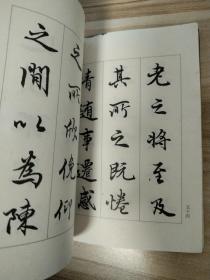 老之将至及
其所之既惓
情随事遷感
之所欣俛仰
之間以為陳
五十四